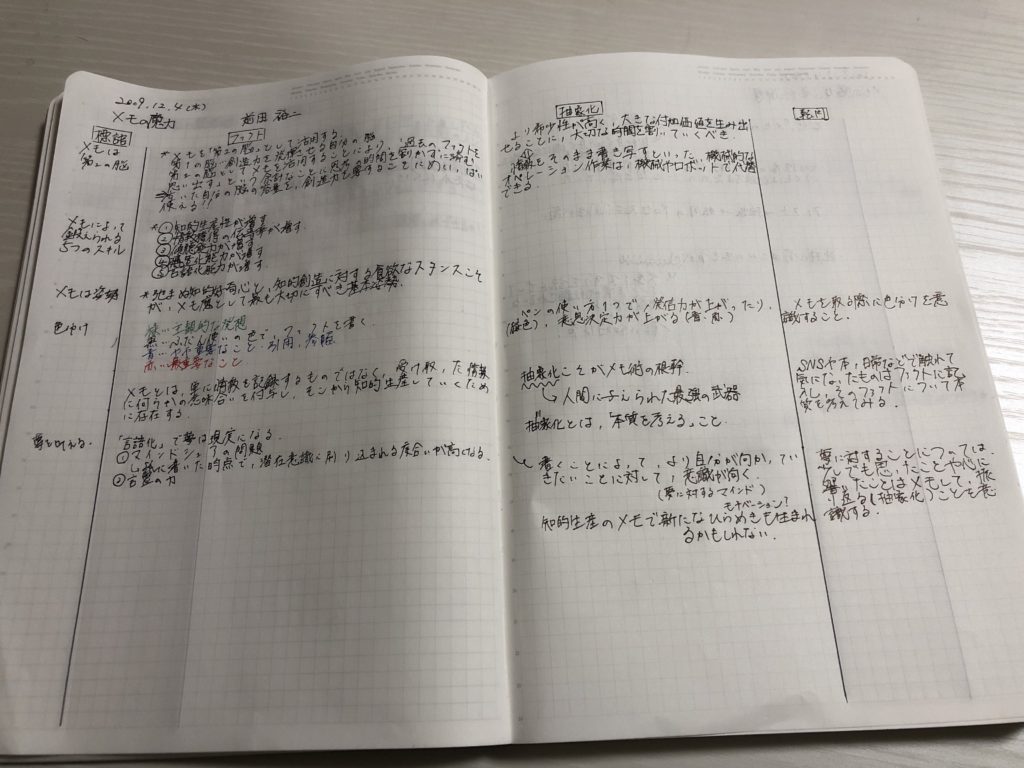 2019.12.4(水)
メモの魔力 前田 裕二
標語
ファクト
メモは
第2の脳
*メモを「第2の脳」として活用する。
使える!!
メモによって
鍛えられる
5つのスキル
*①知的生産性が増す。
②情報獲得の伝導率が増す。
③傾聴能力が増す。
④構造化能力が増す。
⑤言語化能力が増す。
メモは姿勢
*飽くなき知的好奇心と、知的創造に対する貪欲なスタンスこそ
が、メモ魔として最も大切にすべき基本姿勢。
色分け
緑い 主観的な発想
黒い ふだん使いの色で、ファクトを書く。
青い やや重要なこと、引用、参照
赤い 最重要なこと
メモとは、単に情報を記録するものではなく、受け取った情報
に何らかの意味合いを付与し、そこから知的生産していくため
に存在する。
夢を叶える。
「言語化」で夢は現実になる。
①マインドシェアの問題
し 紙に書いた時点で、潜在意識に刷り込まれる度合いが高くなる。
②言霊の力
抽象化
より希少性が高く、大きな付加価値を生み出
せることに、大切な時間を割いていくべき
情報をそのまま書き写すといった、機械的な
オペレーション作業は、機械やロボットでも代替
できる。
ペンの使い方1つで、発召力が上がったり、
(緑色)、意思決定力が上がる(青、赤)
抽象化こそがメモ術の根幹
↳人間に与えられた最強の武器
抽象化とは、「本質を考える」こと
↳書くことによって、より自分が向かってい
きたいことに対して、意識が向く。
(夢に対するマインド)
モチベーション?
知的生産のメモで新たなひらめきも生まれ
るかもしれない。
転用
メモを取る際に色分けを意
識すること。
SNSや本、日常などで触れて
気になったものはファクトに記
入し、そのファクトについて本
質を考えてみる。
夢に対することについては、
少しでも思ったことや心に
響いたことはメモして、振
り返る(抽象化)ことを意
識する。